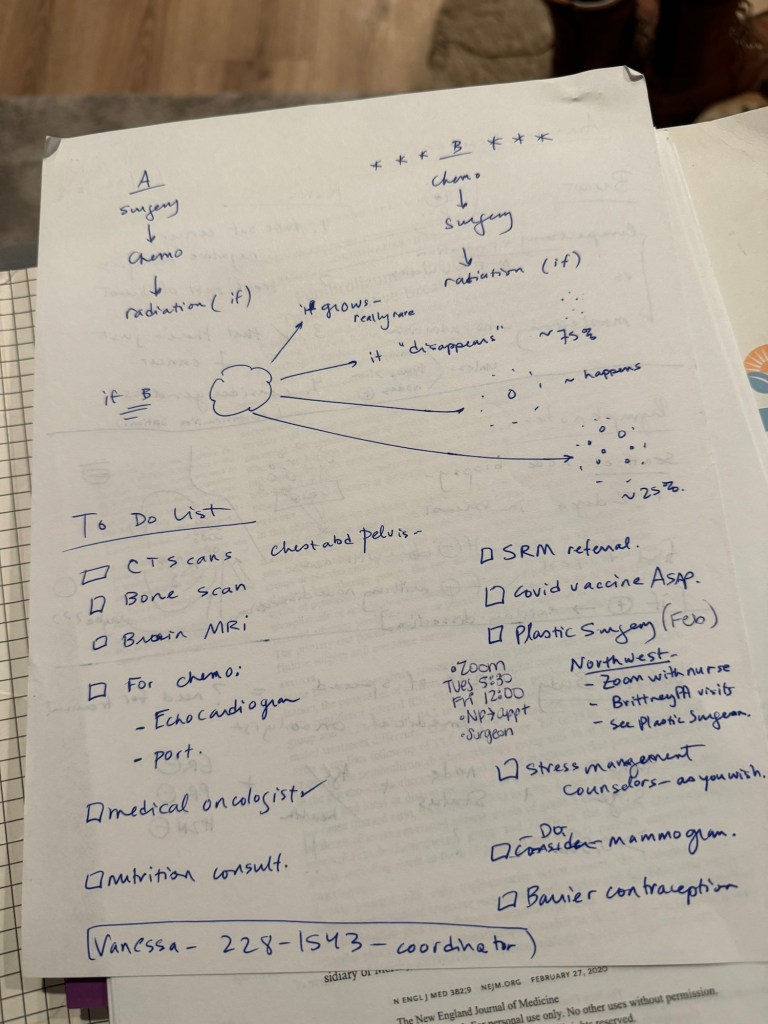 A
surgery
↓
chemo
↓
radiation (if)
* * * B * * *
chemo
↓
surgery
↓
radiation (if)
if B
it grows -
really rare
it "disappears" ~75%
~ happens
~25%.
To Do List
☐ CT scans chest abd pelvis -
☐ Bone scan
☐ Brain MRi
☐ For chemo:
- Echocardiogram
- port.
☐ medical oncologist ✓
☐ nutrition consult.
☐ SRM referral.
☐ Covid vaccine ASAP.
☐ Plastic Surgery (Feb)
• Zoom
Tues 5:30
Fri 12:00
• NP → appt
• Surgeon
Northwest -
- Zoom with nurse
- Brittney PA visit
- see Plastic Surgeon.
☐ Stress management
counselors - as you wish.
- Do
☐ consider - mammogram.
☐ Barrier contraception
Vanessa - 228-1543 - coordinator
N ENGL J MED 382;9 NEJM.ORG FEBRUARY 27, 2020
The New England Journal of Medicine
personal use only. No other uses without permission.
reserved.